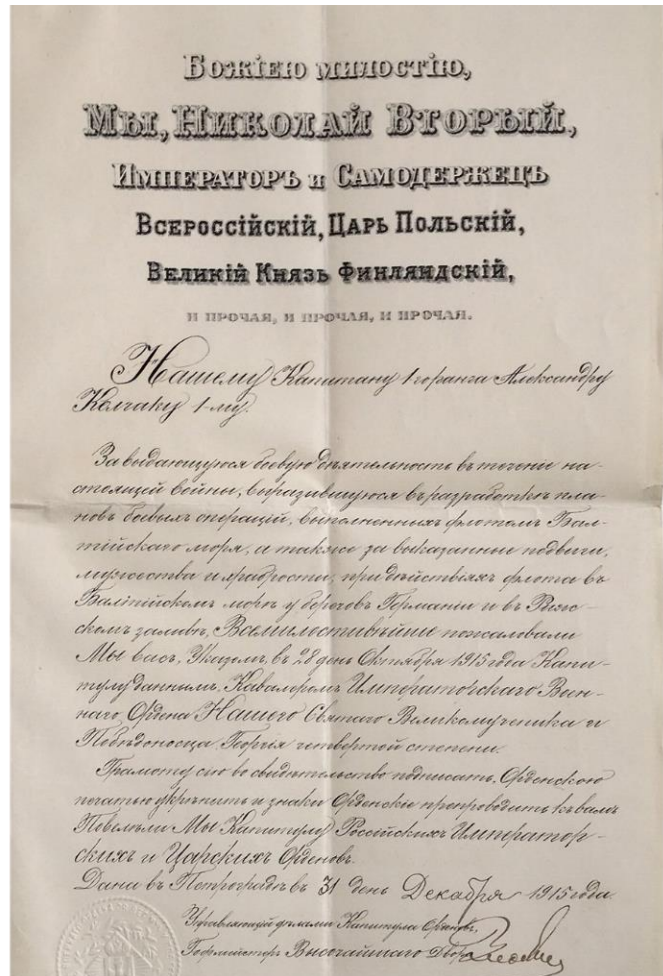 Божіею милостію,
Мы, Николай Вторый,
Императоръ и Самодержецъ
Всероссійскій, Царь Польскій,
Великій Князь Финляндскій,
и прочая, и прочая, и прочая.
Нашему Капитану 1го ранга Александру
Колчаку 1-му.
За выдающуюся боевую дѣятельность въ теченіе на-
стоящей войны, выразившуюся въ разработкѣ пла-
новъ боевыхъ операцій, выполненныхъ флотомъ Бал-
тійскаго моря, и также за выказанные подвиги,
мужества и храбрости, при дѣйствіяхъ флота въ
Балтійскомъ морѣ у береговъ Германіи и въ Риж-
скомъ заливѣ, Всемилостивѣйше пожаловали
Мы васъ, Указомъ, въ 28 день Октября 1915 года Капи-
тулу даннымъ, Кавалеромъ Императорскаго Воен-
наго Ордена Нашего Святаго Великомученика и
Побѣдоносца Георгія четвертой степени.
Грамоту сію во свидѣтельство подписать, Орденскою
печатью укрѣпить и знаки Орденскіе препроводить къ вамъ
Повелѣли Мы Капитулу Россійскихъ Император-
скихъ и Царскихъ Орденовъ.
Дана въ Петроградѣ въ 31 день Декабря 1915 года.
Управляющій дѣлами Капитула Орденовъ,
Гофмейстеръ Высочайшаго Двора